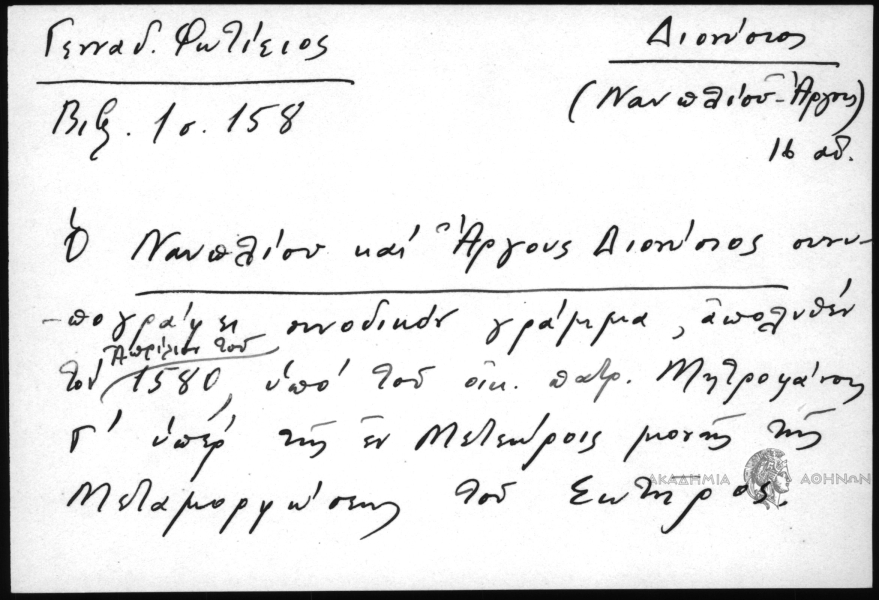 Γενναδ. Φωτίειος
Διονύσιος
Βιβ. 1 σ. 158
(Ναυπλίου - Ἄργους)
16 αἰ.
Ὁ Ναυπλίου καί Ἄργους Διονύσιος συνυ-
-πογράφει συνοδικόν γράμμα, ἀπολυθέν
Ἀπρίλιον τοῦ
τόν 1580, ὑπό τοῦ οἰκ. πατρ. Μητροφάνους
Γ' ὑπέρ τῆς ἐν Μετεώροις μονῆς τῆς
Μεταμορφώσεως τοῦ Σωτῆρος.
ΑΚΑΔΗΜΙΑ ΑΘΗΝΩΝ